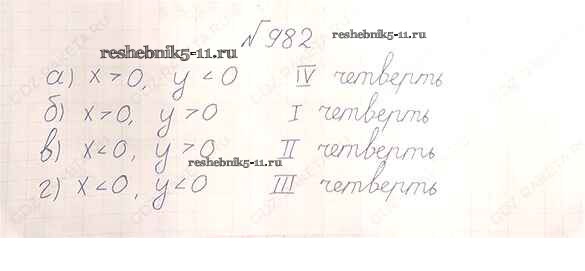 №982
reshebnik5-11.ru
reshebnik5-11.ru
а) x > 0, y < 0 IV четверть
б) x > 0, y > 0 I четверть
в) x < 0, y > 0 II четверть
reshebnik5-11.ru
г) x < 0, y < 0 III четверть